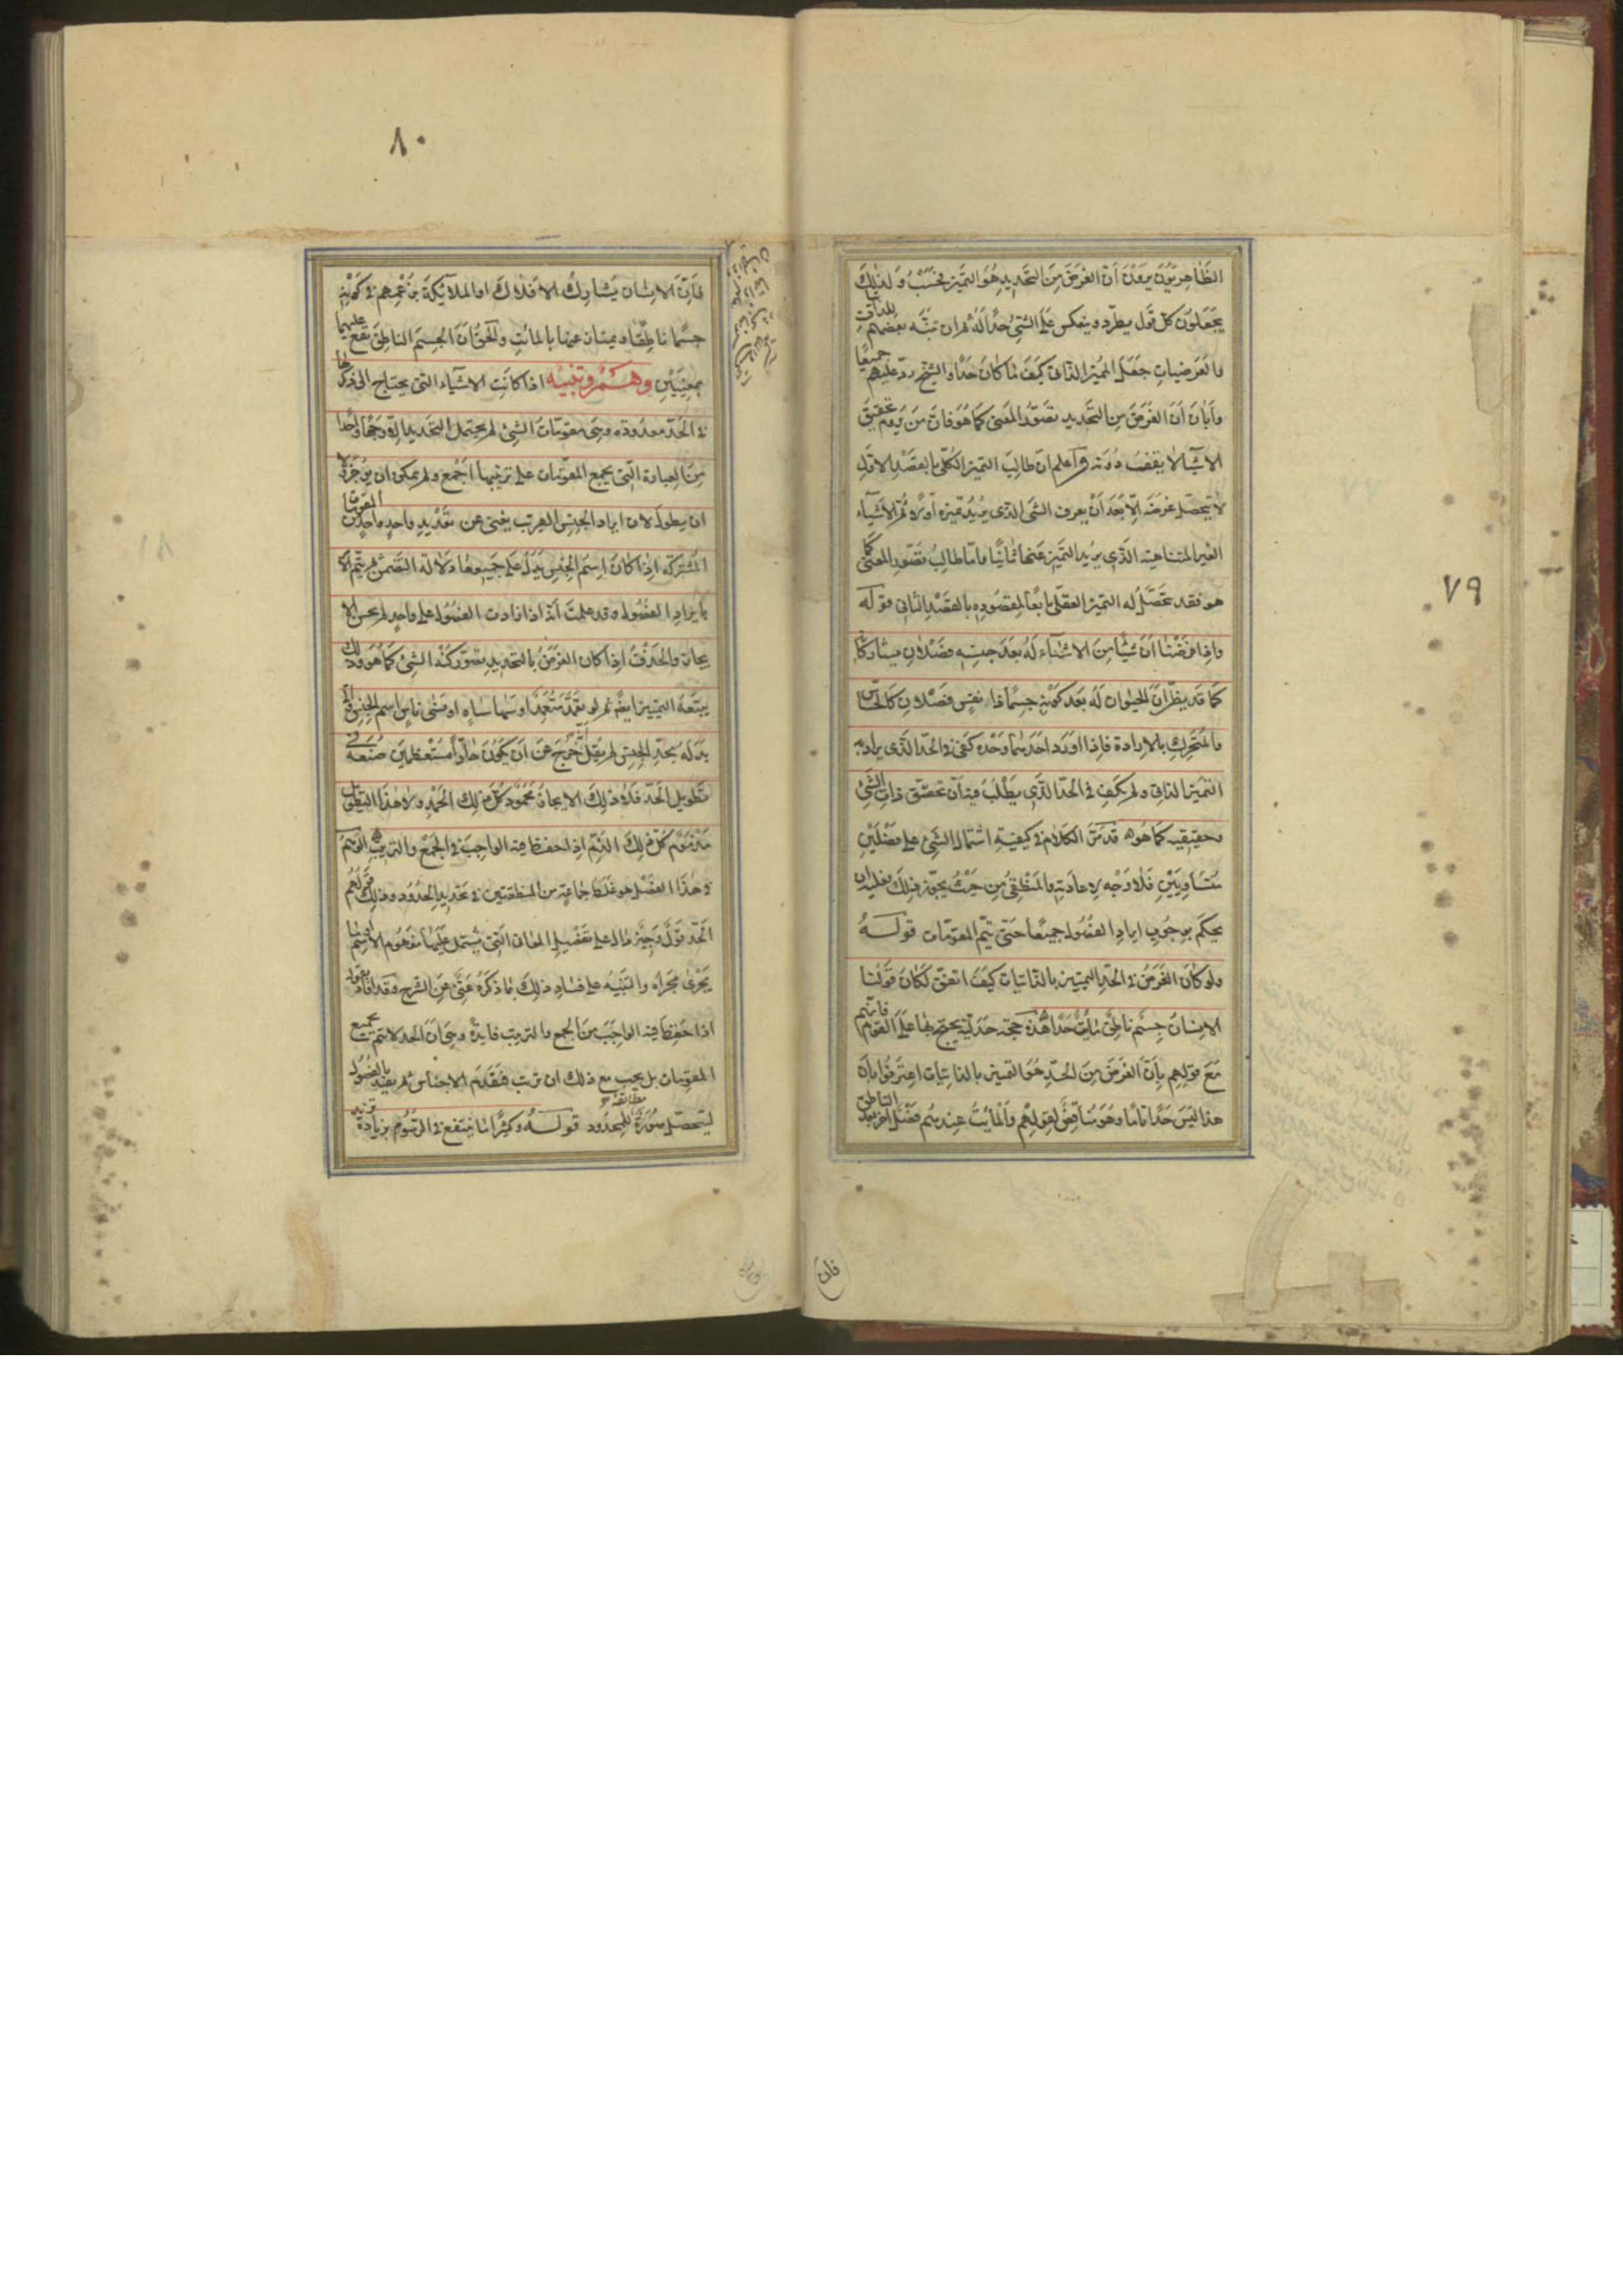 ٧٩
الظَّاهِرِيّونَ يرَوْنَ أنّ الغَرَضَ مِنَ التحَديدِ هُوَ التميز فحَسْبُ وَلذٰلِكَ
يَجعَلونَ كلّ قَول يطّرد وينعكس عَلَى الشئ حدًّا لَهُ ثم ان تنبّه بعضهم للذاتيات
والعَرضيات جَعَلَ المميز الذاتى كَيفَ مَا كانَ حَدًّا والشيخ ردّ عليهم جميعًا
وَأبَانَ أنّ الغَرَضَ مِن التحَديد تصَوّر المعنى كمَا هُوَ فان مَن يَروم تحقيق
الاشيَاء لا يقف دُونَه واعلم ان طالِبَ التميز الكلّى بالقصْد الاوّل
لا يتحصّل غرضه الّا بَعدَ أنْ يعرف الشئ الذى يريُد تميزه أوّلا ثمّ الاشيَاء
الغير المتناهية الذى يرِيد التميّز عَنها ثانيًا وامّا طالِبُ تصَوّر المعنى كما
هو فقد تحَصّلُ له التميز العقلى تابعًا لمقصُوده بالقصْد الثانى قوله
وَاذا فرَضنا انّ شيئًا مِنَ الاشيَاء لهُ بَعدَ جنسِه فصْلانِ يساوِيَانه
كما قد يظنّ انّ الحيوان لهُ بعد كونه جسمًا ذا نفسٍ فصْلانِ كالحسّاس
والمتحرك بالارادة فاذا اورد احَدهما وَحْده كفى فى الحدّ الذى يراد به
التمَيز الذاتى ولم يكفِ فى الحدّ الذى يُطْلَبُ فيهَ أن تحقّق ذاتَ الشئ
وحقيقته كما هُوَ قد مَرّ الكلام فى كيفيةِ اشتمال الشئِ على فصْلَيْنِ
مُتسَاويَيْنِ فلا وَجْه لاعادته والمنطقىُ مِن حَيثُ يجوّز ذلِكَ فعليه ان
يحكم بوجُوبِ ايراد الفصُول جميعًا حَتّى يتمّ المقوّمات قولــهُ
ولو كانَ الغَرَضُ فى الحدّ التمييز بالذاتيات كَيفَ اتفق لكانَ قولنا
الانسَانَ جسْم ناطِق مائتٌ حَدًّا هٰذه حجّة جَدَليّة يحتج بها عَلَى القوم فانّهم
مَعَ قولِهم بِأنّ الغَرَضَ مِنَ الحَدّ هُوَ التمييز بالذاتيات اعترفوا بأن
هذا ليسَ حَدًّا تامًّا وَهُوَ مناقِضٌ لقولهْم وَالمائِتُ عندهُم فصْلٌ اخر بعد الناطق
فان
٨٠
فانّ الانسَان يشارِكُ الافلاكَ او الملائكة بزعْمِهم فى كَونِه
جسْمًا ناطقًا ويمتاز عنها بالمائت والحقّ انّ الجسم الناطق تقع عليهما
بمعنيَيْنِ وهــم وتنبيه اذا كانت الاشيَاء التى يحتاج الى ذكرها
فى الحدّ معدودة وهى مقومّات الشئ لم يحتمل التحديد الّا وجهًا واحدًا
مِنَ العبارة التى يجمع المقوّمات على ترتيبها أجمع ولم يمكن ان يوجز ولا
ان يطول لان ايراد الجنسِ القريب يغنى عن تعديدِ واحدٍ واحدٍ من المقومات
المشتركة اذا كانَ اسم الجنسِ يدلّ على جميعها دلالة التضمن ثم يتم الامر
بايراد الفصُول وقد علمتَ أنّه اذا زادت الفصُول على واحدٍ لم يحسن الا
يجاز والحذف اذا كان الغرضُ بالتحديدِ تصوّر كنْه الشئ كما هُوَ وذلك
يتبعهُ التمييز ايضًا ثم لو تعمّدَ متعمّدًا او سها ساهٍ او نسى ناسٍ اسم الجنسِ وأتى
بدَله بحدّ الجنسِ لم نقل أنّه خرَجَ عَنَ ان يكوُنَ حَادًّا مُستعظمين صُنعه فى
تطويل الحدّ فلا ذٰلِكَ الايجاز محْمُود كلّ ذٰلِكَ الحَمْدِ ولا هذا التطويل
مَذموْم كلّ ذٰلِكَ الذمّ اذا حفظ فيه الواجبَ فى الجَمْعِ والترتيب الوهَمْ
فى هٰذا الفصْل هو غلط جَمَاعةٍ من المنطقيّين فى تحَديدِ الحُدُودِ وذلِكَ قولُهُم
الحَدّ قولٌ وَجيزٌ دال على تفصيل المعانى التى يشتمل عليهَا مفهُوم الاسْم او ما
يَجْرى مَجْراه والتنبيه على فسَادِ ذلِكَ بما ذكَرَهُ غنىّ عن الشرح وقد افاد بقوله
اذا حفظ فيه الواجَبَ مِنَ الجمع والترتيب فايدة وهى انّ الحد لا يتم بجميع
المقومات بل يجب مع ذلك ان ترتب فتقدم الاجناس ثم يقيد بالفصُول
ليتحصّل صُورَةٌ مطابقة للمحدُود قولــهُ وَكثيرًا ما ينتفع فى الرسُوم بزيادة تزيد